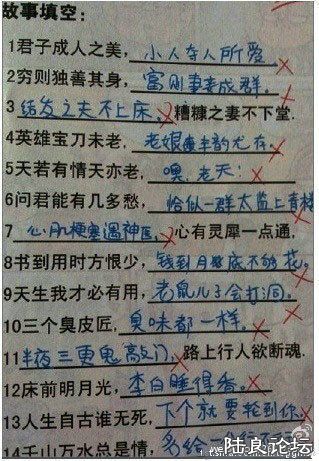 故事填空：
1君子成人之美，小人夺人所爱。
2穷则独善其身，富则妻妾成群。
3结发之夫不上床，糟糠之妻不下堂.
4英雄宝刀未老，老娘风韵尤存。
5天若有情天亦老，噢，老天！
6问君能有几多愁，恰似一群太监上青楼
7心肌梗塞遇神医，心有灵犀一点通，
8书到用时方恨少，钱到月底不够花。
9天生我才必有用，老鼠儿子会打洞。
10三个臭皮匠，臭味都一样。
11半夜三更鬼敲门，路上行人欲断魂.
12床前明月光，李白睡得香。
13人生自古谁无死，下个就要轮到你。
14千山万水总是情，多给一分行不行
陆良论坛